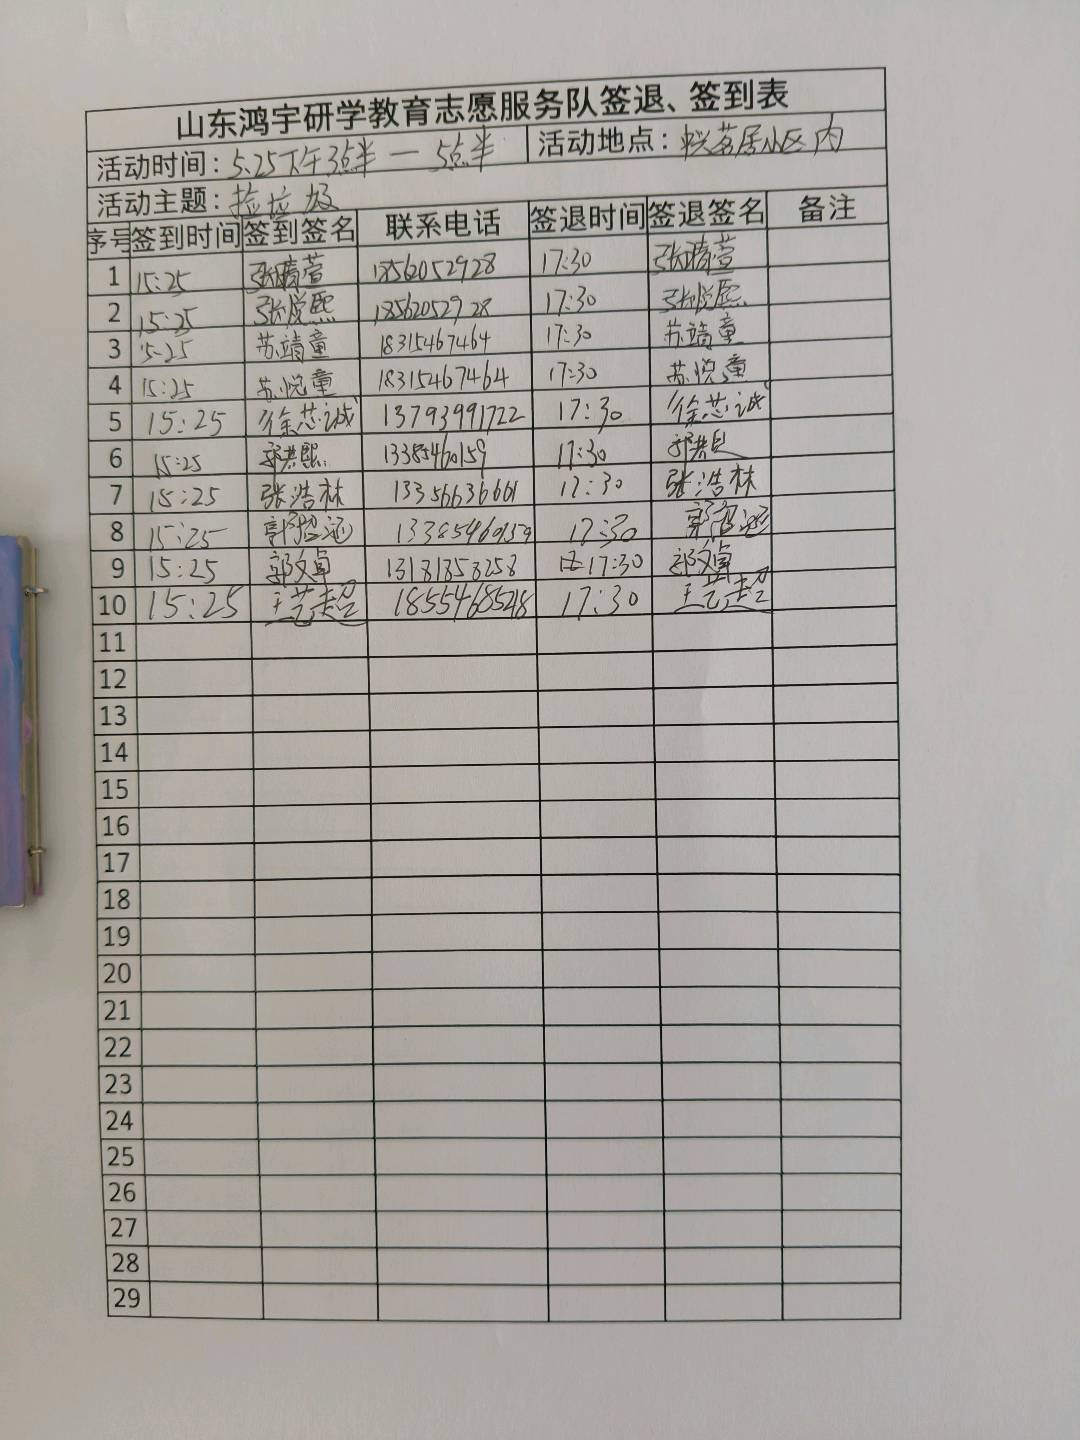 山东鸿宇研学教育志愿服务队签退、签到表
活动时间：5.25下午3点半—5点半 活动地点：悦茗居小区内
活动主题：捡垃圾
序号 签到时间 签到签名 联系电话 签退时间 签退签名 备注
1 15:25 张晴萱 18562052928 17:30 张晴萱
2 15:25 张悦熙 18562052928 17:30 张悦熙
3 15:25 苏靖童 18315467464 17:30 苏靖童
4 15:25 苏悦童 18315467464 17:30 苏悦童
5 15:25 徐芯诚 13793991722 17:30 徐芯诚
6 15:25 13385460159 17:30
7 15:25 张浩林 13356636661 17:30 张浩林
8 15:25 13385460159 17:30
9 15:25 郭文卓 13181858258 17:30 郭文卓
10 15:25 王艺超 1855468548 17:30 王艺超
11
12
13
14
15
16
17
18
19
20
21
22
23
24
25
26
27
28
29